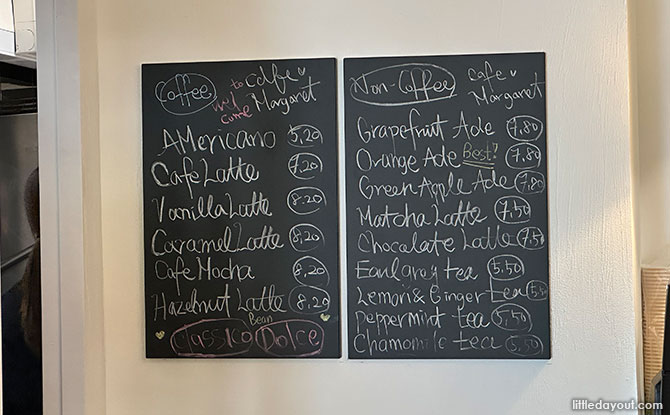 Coffee
welcome to cafe
Margaret
AMericano 5,20
Cafe Latte 7,20
Vanilla Latte 8.20
Caramel Latte 8,20
Cafe Mocha 8,20
Hazelnut Latte 8,20
Bean
Classico Dolce
Non-Coffee
cafe
Margaret
Grapefruit Ade 7,80
Orange Ade Best! 7,80
Green Apple Ade 7,80
Matcha Latte 7,50
Chocolate Latte 7,5
Earl grey tea 5,50
Lemon & Ginger tea 5,5
Peppermint tea 5,50
Chamomile tea 5,50
littledayout.com